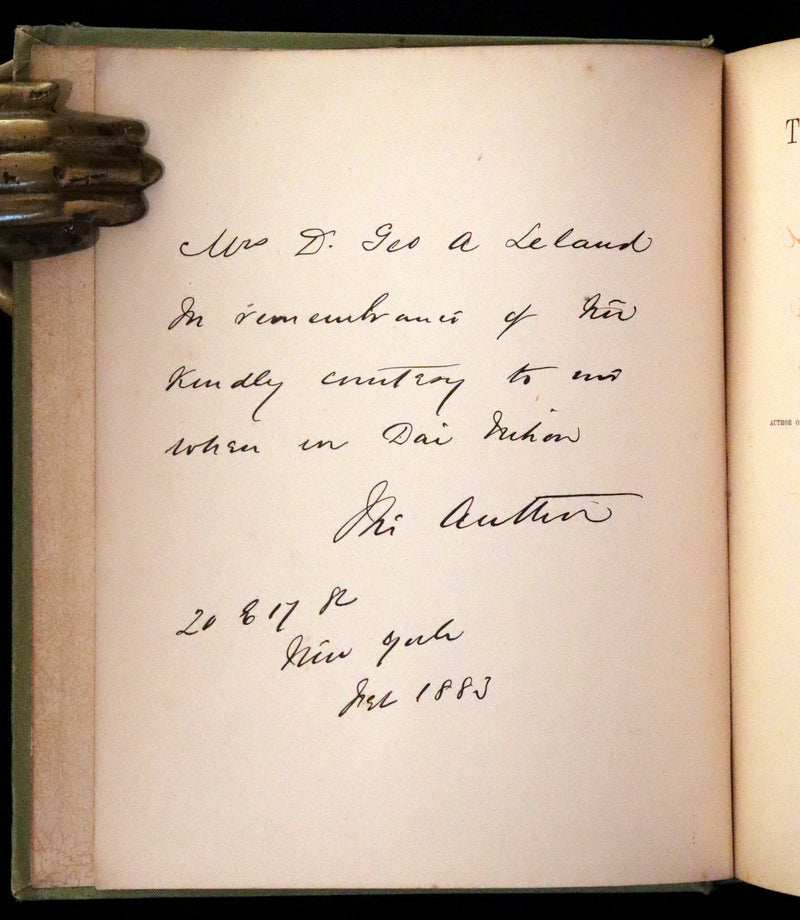 Mrs D. Geo A Leland
In remembrance of her
kindly courtesy to me
when in Dai Nihon
The Author
20 E 17 St
New York
1883
T
AUTHOR O